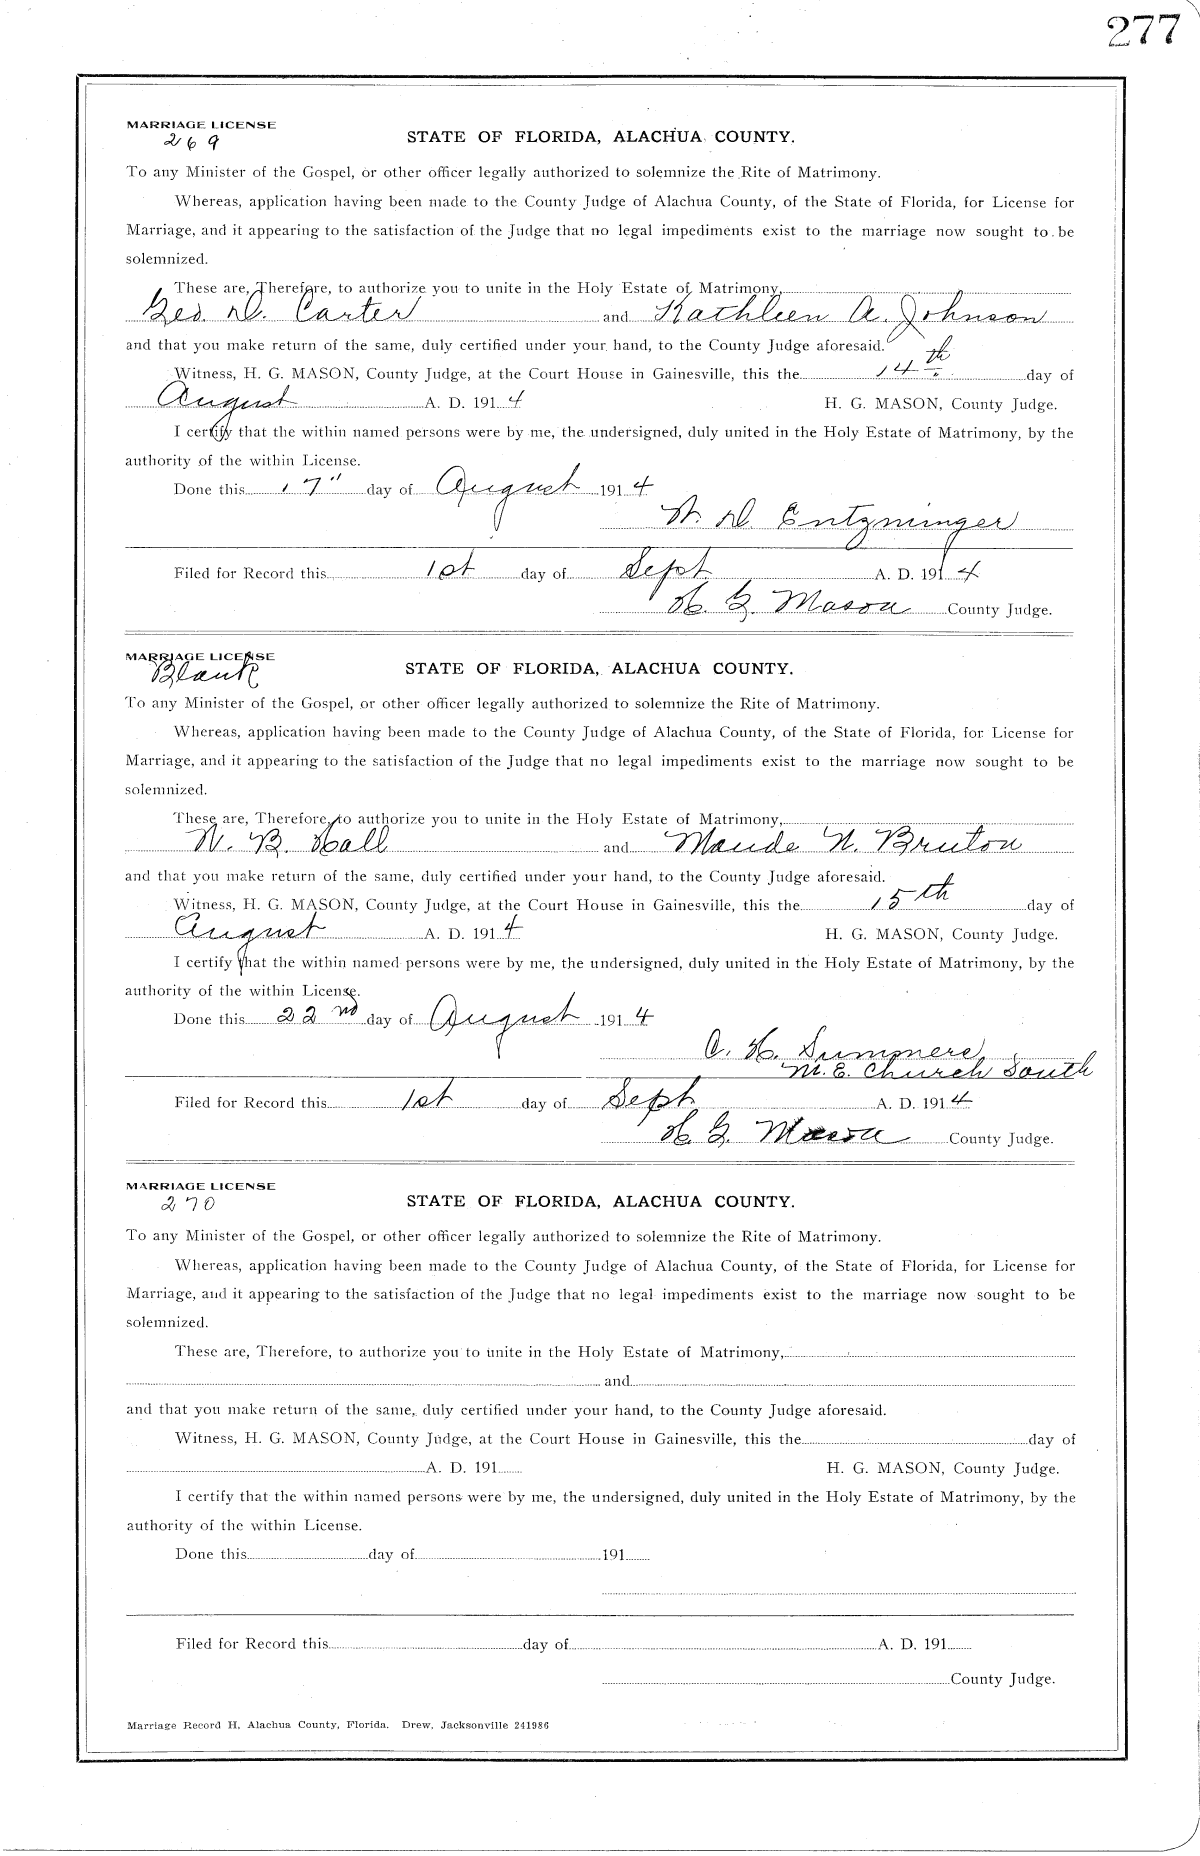 277
MARRIAGE LICENSE
269
STATE OF FLORIDA, ALACHUA COUNTY.
To any Minister of the Gospel, or other officer legally authorized to solemnize the Rite of Matrimony.
Whereas, application having been made to the County Judge of Alachua County, of the State of Florida, for License for
Marriage, and it appearing to the satisfaction of the Judge that no legal impediments exist to the marriage now sought to be
solemnized.
These are, Therefore, to authorize you to unite in the Holy Estate of Matrimony,
Geo. D. Carter and Kathleen A. Johnson
and that you make return of the same, duly certified under your hand, to the County Judge aforesaid.
Witness, H. G. MASON, County Judge, at the Court House in Gainesville, this the 14th day of
August A. D. 1914 H. G. MASON, County Judge.
I certify that the within named persons were by me, the undersigned, duly united in the Holy Estate of Matrimony, by the
authority of the within License.
Done this 17" day of August 1914
W. D. Entzminger
Filed for Record this 1st day of Sept A. D. 1914
H. G. Mason County Judge.
MARRIAGE LICENSE
Blank
STATE OF FLORIDA, ALACHUA COUNTY.
To any Minister of the Gospel, or other officer legally authorized to solemnize the Rite of Matrimony.
Whereas, application having been made to the County Judge of Alachua County, of the State of Florida, for License for
Marriage, and it appearing to the satisfaction of the Judge that no legal impediments exist to the marriage now sought to be
solemnized.
These are, Therefore, to authorize you to unite in the Holy Estate of Matrimony,
W. B. Hall and Maude N. Bruton
and that you make return of the same, duly certified under your hand, to the County Judge aforesaid.
Witness, H. G. MASON, County Judge, at the Court House in Gainesville, this the 15th day of
August A. D. 1914 H. G. MASON, County Judge.
I certify that the within named persons were by me, the undersigned, duly united in the Holy Estate of Matrimony, by the
authority of the within License.
Done this 22nd day of August 1914
C. H. Summers,
M. E. Church South
Filed for Record this 1st day of Sept A. D. 1914
H. G. Mason County Judge.
MARRIAGE LICENSE
270
STATE OF FLORIDA, ALACHUA COUNTY.
To any Minister of the Gospel, or other officer legally authorized to solemnize the Rite of Matrimony.
Whereas, application having been made to the County Judge of Alachua County, of the State of Florida, for License for
Marriage, and it appearing to the satisfaction of the Judge that no legal impediments exist to the marriage now sought to be
solemnized.
These are, Therefore, to authorize you to unite in the Holy Estate of Matrimony,
and
and that you make return of the same, duly certified under your hand, to the County Judge aforesaid.
Witness, H. G. MASON, County Judge, at the Court House in Gainesville, this the day of
A. D. 191 H. G. MASON, County Judge.
I certify that the within named persons were by me, the undersigned, duly united in the Holy Estate of Matrimony, by the
authority of the within License.
Done this day of 191
Filed for Record this day of A. D. 191
County Judge.
Marriage Record H, Alachua County, Florida. Drew, Jacksonville 241986